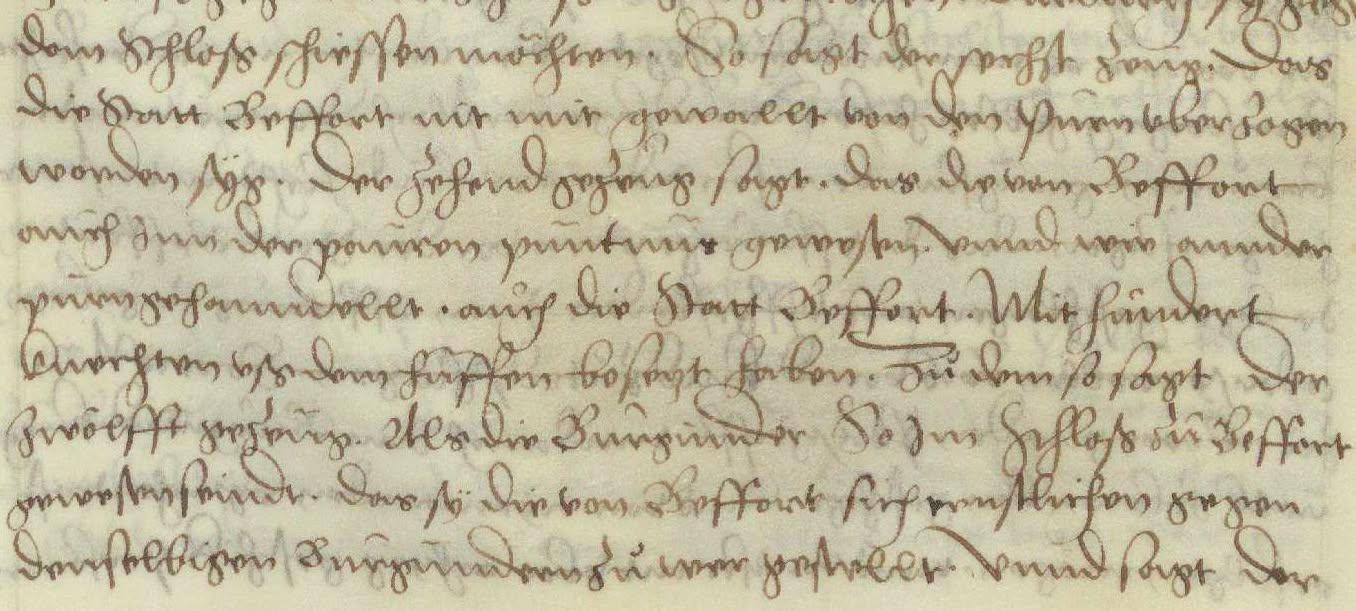 dem Schloß schiessen möchten. So sagt der sechst zeug. Das
die Statt Beffort nit mit gewallt von den Pürn vberzogen
worden syg. Der zehend gezeug sagt. das die von Beffort
auch Inn der pauren püntnus gewesen. Vnnd wie annder
pürn gehanndellt. auch die Statt Beffort. Mit hundert
knechten vß dem huffen besetzt haben. Zů dem so sagt der
zwölfft gezeug. Als die Burgunder So Im Schloß zů Beffort
gewesen seindt. das sy die von Beffort sich ernstlichen gegen
denselbigen Burgundern zů wer gestellt. Vnnd sagt der